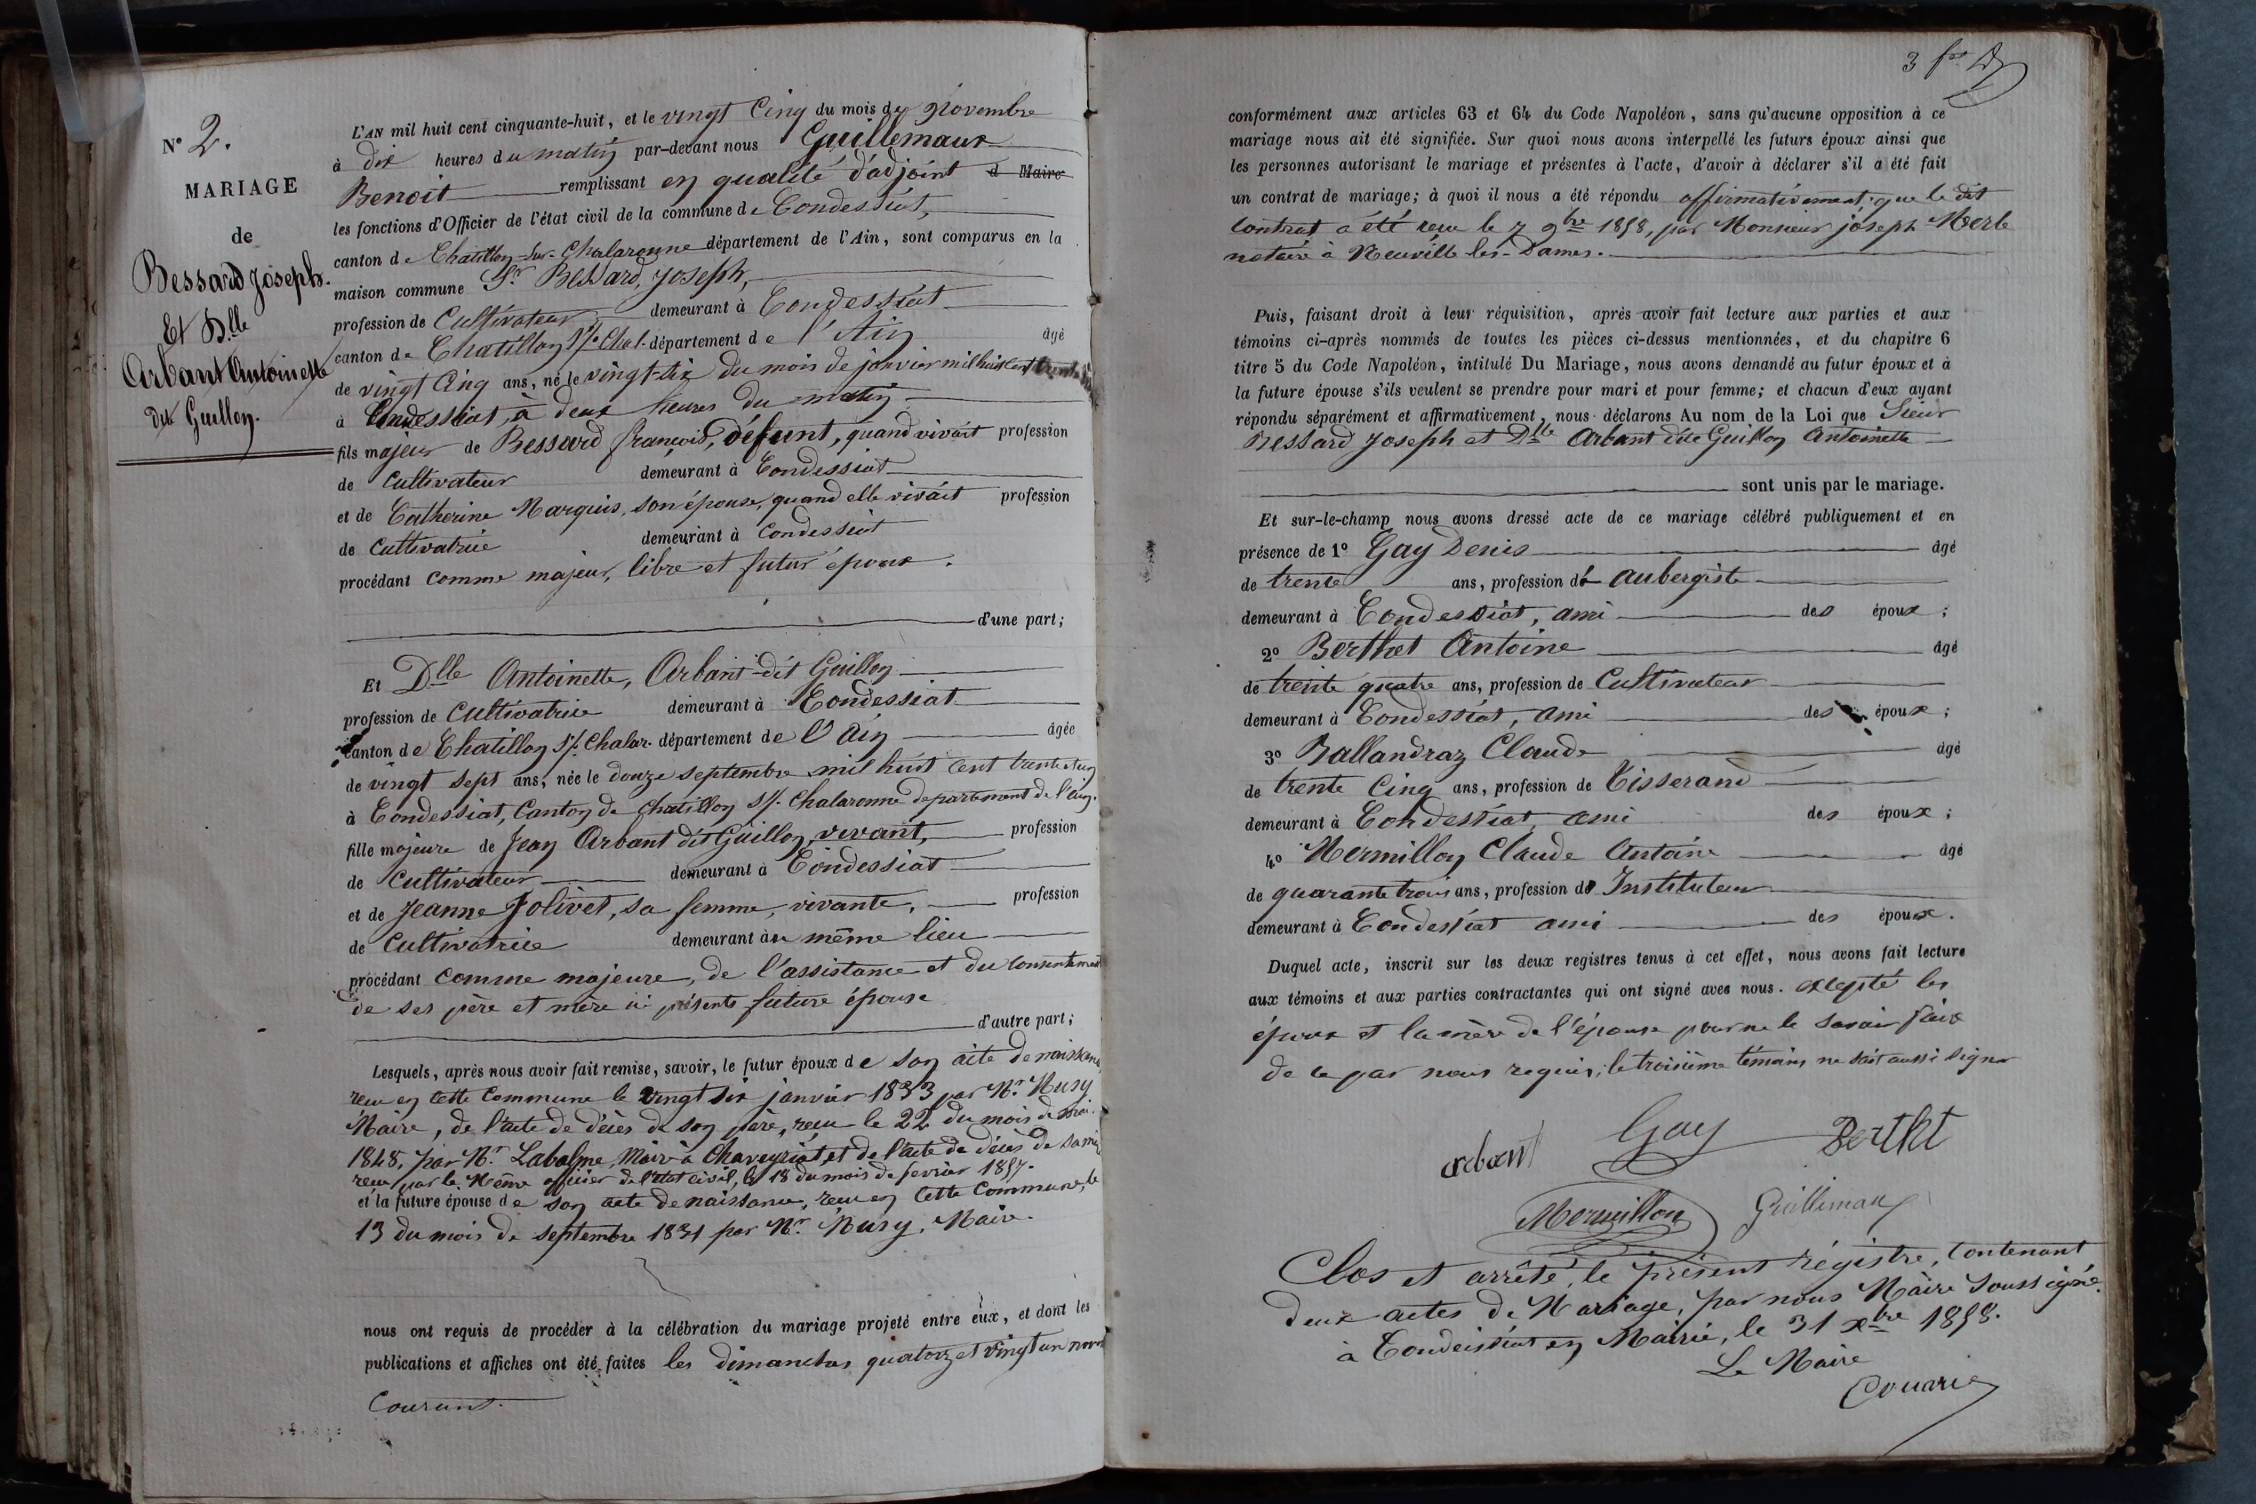 N° 2.
MARIAGE
de
Bessard Joseph.
Et D.lle
Arbant Antoinette
dit Guillon.
L'AN mil huit cent cinquante-huit, et le vingt Cinq du mois de Novembre
à dix heures du matin par-devant nous Guillemaux
Benoit remplissant en qualité d'adjoint d Maire
les fonctions d'Officier de l'état civil de la commune de Condessiat,
canton de Chatillon-sur-Chalaronne département de l'Ain, sont comparus en la
maison commune Sr Bessard, Joseph,
profession de Cultivateur demeurant à Condessiat
canton de Chatillon s/. Chal. département de l'Ain âgé
de vingt Cinq ans, né le vingt-six du mois de janvier mil huit cent trente
à Condessiat, à deux heures du matin
fils majeur de Bessard françois, défunt, quand vivait profession
de Cultivateur demeurant à Condessiat
et de Catherine Marquis, son épouse, quand elle vivait profession
de Cultivatrice demeurant à Condessiat
procédant comme majeur, libre et futur époux.
d'une part;
Et Dlle Antoinette, Arbant-dit Guillon
profession de Cultivatrice demeurant à Condessiat
canton de Chatillon s/. Chalar. département de l'Ain âgée
de vingt sept ans, née le douze septembre mil huit cent trente et un
à Condessiat, Canton de Chatillon s/. Chalaronne departement de l'ain.
fille majeure de Jean Arbant dit Guillon, vivant, profession
de Cultivateur demeurant à Condessiat
et de Jeanne Jolivet, sa femme, vivante, profession
de Cultivatrice demeurant au même lieu
procédant comme majeure, de l'assistance et du consentement
de ses père et mère ici présents future épouse
d'autre part;
Lesquels, après nous avoir fait remise, savoir, le futur époux de son acte de naissance
reçu en cette Commune le vingt six janvier 1833 par Mr. Musy
Maire, de l'acte de décès de son père, reçu le 22 du mois de mai
1848, par Mr. Labalme, Maire à Chaveyriat, et de l'acte de décès de sa mère
reçu par le Même officier de l'état civil, le 18 du mois de fevrier 1857.
et la future épouse de son acte de naissance, reçu en Cette Commune, le
13 du mois de septembre 1831 par Mr. Musy, Maire.
nous ont requis de procéder à la célébration du mariage projeté entre eux, et dont les
publications et affiches ont été faites les dimanches quatorze et vingt un nov
Courant.
3
conformément aux articles 63 et 64 du Code Napoléon, sans qu'aucune opposition à ce
mariage nous ait été signifiée. Sur quoi nous avons interpellé les futurs époux ainsi que
les personnes autorisant le mariage et présentes à l'acte, d'avoir à déclarer s'il a été fait
un contrat de mariage; à quoi il nous a été répondu affirmativement que le dit
Contrat a été reçu le 7 9bre 1858, par Monsieur joseph Merle
notaire à Neuville les-Dames.
Puis, faisant droit à leur réquisition, après avoir fait lecture aux parties et aux
témoins ci-après nommés de toutes les pièces ci-dessus mentionnées, et du chapitre 6
titre 5 du Code Napoléon, intitulé Du Mariage, nous avons demandé au futur époux et à
la future épouse s'ils veulent se prendre pour mari et pour femme; et chacun d'eux ayant
répondu séparément et affirmativement, nous déclarons Au nom de la Loi que Sieur
Bessard Joseph et Dlle Arbant dite Guillon Antoinette
sont unis par le mariage.
Et sur-le-champ nous avons dressé acte de ce mariage célébré publiquement et en
présence de 1° Gay Denis âgé
de trente ans, profession d' aubergiste
demeurant à Condessiat, ami des époux;
2° Berthet Antoine âgé
de trente quatre ans, profession de Cultivateur
demeurant à Condessiat, ami des époux;
3° Ballandraz Claude âgé
de trente Cinq ans, profession de Tisserand
demeurant à Condessiat, ami des époux;
4° Mermillon Claude Antoine âgé
de quarante trois ans, profession de Instituteur
demeurant à Condessiat ami des époux.
Duquel acte, inscrit sur les deux registres tenus à cet effet, nous avons fait lecture
aux témoins et aux parties contractantes qui ont signé avec nous. excepté les
époux et la mère de l'épouse pour ne le savoir faire
de ce par nous requis, le troisième témoin ne sait aussi signer
arbant Gay Berthet
Mermillon Guillemaux
Clos et arrêté, le présent régistre, Contenant
deux actes de Mariage, par nous Maire Soussigné.
à Condeissiat en Mairie, le 31 xbre 1858.
Le Maire